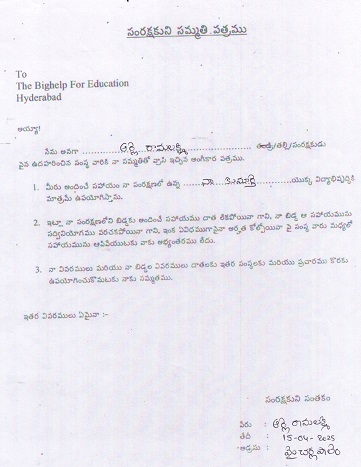 సంరక్షకుని సమ్మతి పత్రము
To
The Bighelp For Education
Hyderabad
అయ్యా!
నేను అనగా ........ రామలక్ష్మి ........ తండ్రి/తల్లి/సంరక్షకుడు
పైన ఉదహరించిన సంస్థ వారికి నా సమ్మతితో వ్రాసి ఇచ్చిన అంగీకార పత్రము.
1. మీరు అందించే సహాయం నా సంరక్షణలో ఉన్న ........ నా కుమార్తె ........ యొక్క విద్యాభివృద్ధికి
మాత్రమే ఉపయోగిస్తాము.
2. ఇట్లా నా సంరక్షణలోని బిడ్డకు అందించే సహాయము దాత లేకపోయినా గాని, నా బిడ్డ ఆ సహాయమును
సద్వినియోగము పరచకపోయినా గాని, ఇంక ఏవిధముగానైనా అర్హత కోల్పోయినా పై సంస్థ వారు మధ్యలో
సహాయమును ఆపివేయుటకు నాకు అభ్యంతరము లేదు.
3. నా వివరములు మరియు నా బిడ్డల వివరములు దాతలకు ఇతర సంస్థలకు మరియు ప్రచారము కొరకు
ఉపయోగించుకొనుటకు నాకు సమ్మతము.
ఇతర వివరములు ఏమైనా :-
సంరక్షకుని సంతకం
పేరు : రామలక్ష్మి
తేదీ : 15-04-2025
అడ్రసు :